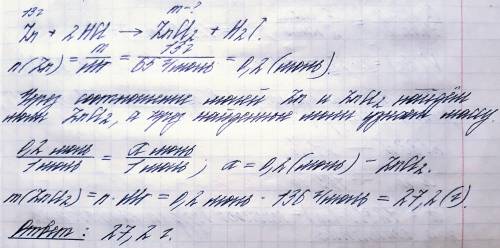 13г m-?
Zn + 2HCl → ZnCl₂ + H₂↑.
n(Zn) = m/M = 13г/65 г/моль = 0,2 (моль).
Через соотношение молей Zn и ZnCl₂ найдём
моли ZnCl₂, а через найденные моли узнаем массу.
0,2 моль/1 моль = a моль/1 моль; a = 0,2 (моль) - ZnCl₂.
m(ZnCl₂) = n · M = 0,2 моль · 136 г/моль = 27,2 (г).
Ответ: 27,2 г.